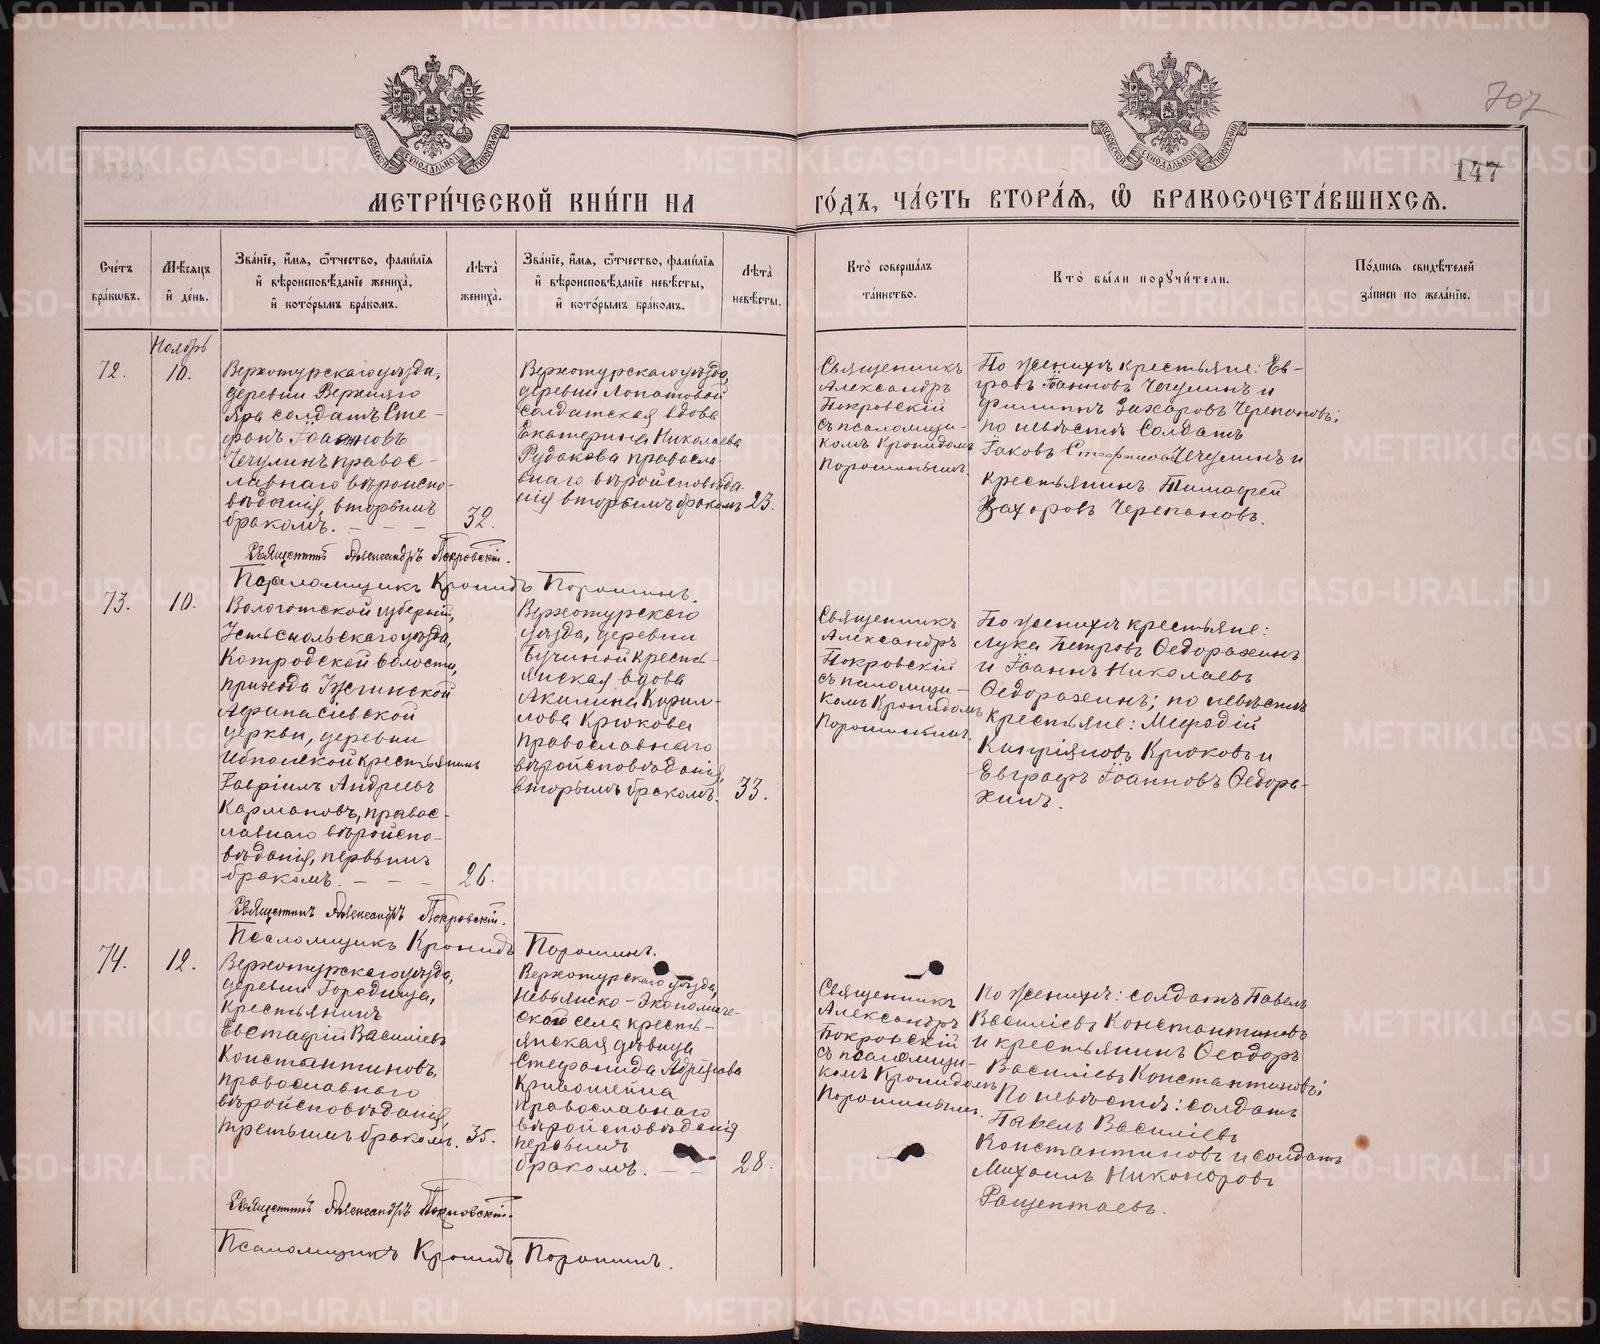 707
147
МЕТРИ́ЧЕСКОЙ КНИ́ГИ НА ГО́ДЪ, ЧА́СТЬ ВТОРА́Я, Ѽ БРАКОСОЧЕТА́ВШИХСЯ.
Сче́тъ
бра́кѡвъ.
Мѣ́сяцъ
и҆ де́нь.
Зва́нїе, и҆́мя, ѻ҆́тчество, фами́лїя
и҆ вѣроисповѣ́данїе жениха̀,
и҆ кото́рымъ бра́комъ.
Лѣ́та
жениха̀.
Зва́нїе, и҆́мя, ѻ҆́тчество, фами́лїя
и҆ вѣроисповѣ́данїе невѣ́сты,
и҆ кото́рымъ бра́комъ.
Лѣ́та
невѣ́сты.
Кто̀ соверша́лъ
та́инство.
Кто̀ бы́ли поручи́тели.
По́дпись свидѣ́телей
за́писи по жела́нїю.
Ноябрь
72.
10.
Верхотурскаго уѣзда,
деревни Верхняго
Яра солдатъ Сте-
фанъ Іоанновъ
Чечулинъ правос-
лавнаго вѣроиспо-
вѣданія, вторымъ
бракомъ. — — —
32.
Верхотурскаго уѣзда
деревни Лопатовой
солдатская вдова
Екатерина Николаева
Рудакова правосла-
внаго вѣроисповѣда-
нія вторымъ бракомъ
23.
Священникъ
Александръ
Покровскій
съ псаломщи-
комъ Кронидомъ
Порошинымъ.
По женихѣ крестьяне: Ев-
графъ Іоанновъ Чечулинъ и
Филиппъ Захаровъ Черепановъ;
по невѣстѣ Солдатъ
Іаковъ Стефановъ Чечулинъ и
крестьянинъ Тимофей
Захаровъ Черепановъ.
Священникъ Александръ Покровскій.
Псаломщикъ Кронидъ Порошинъ.
73.
10.
Вологотской губерніи,
Устьсысольскаго уѣзда,
Когородской волости,
прихода Ужгинской
Афанасіевской
церкви, деревни
крестьянинъ
Гавріилъ Андреевъ
Кармановъ, правос-
лавнаго вѣроиспо-
вѣданія, первымъ
бракомъ. — — —
26.
Верхотурскаго
уѣзда, деревни
Бучиной кресть-
янская вдова
Акилина Кирил-
лова Крюкова
православнаго
вѣроисповѣданія,
вторымъ бракомъ.
33.
Священникъ
Александръ
Покровскій
съ псаломщи-
комъ Кронидомъ
Порошинымъ.
По женихѣ крестьяне:
Лука Петровъ Ѳедорахинъ
и Іоаннъ Николаевъ
Ѳедорахинъ; по невѣстѣ
крестьяне: Мефодій
Кипріяновъ Крюковъ и
Евграфъ Іоанновъ Ѳедора-
хинъ.
Священникъ Александръ Покровскій.
Псаломщикъ Кронидъ Порошинъ.
74.
12.
Верхотурскаго уѣзда,
деревни Городища,
крестьянинъ
Евстафій Василіевъ
Константиновъ,
православнаго
вѣроисповѣданія,
третьимъ бракомъ.
35.
Верхотурскаго уѣзда,
Невьянско-Экономиче-
скаго села кресть-
янская дѣвица
Стефанида Адріанова
Кривошеина
православнаго
вѣроисповѣданія
первымъ
бракомъ. — —
28.
Священникъ
Александръ
Покровскій
съ псаломщи-
комъ Кронидомъ
Порошинымъ.
По женихѣ: солдатъ Павелъ
Василіевъ Константиновъ
и крестьянинъ Ѳеодоръ
Василіевъ Константиновъ;
По невѣстѣ: солдатъ
Павелъ Василіевъ
Константиновъ и солдатъ
Михаилъ Никоноровъ
Ращектаевъ.
Священникъ Александръ Покровскій.
Псаломщикъ Кронидъ Порошинъ.